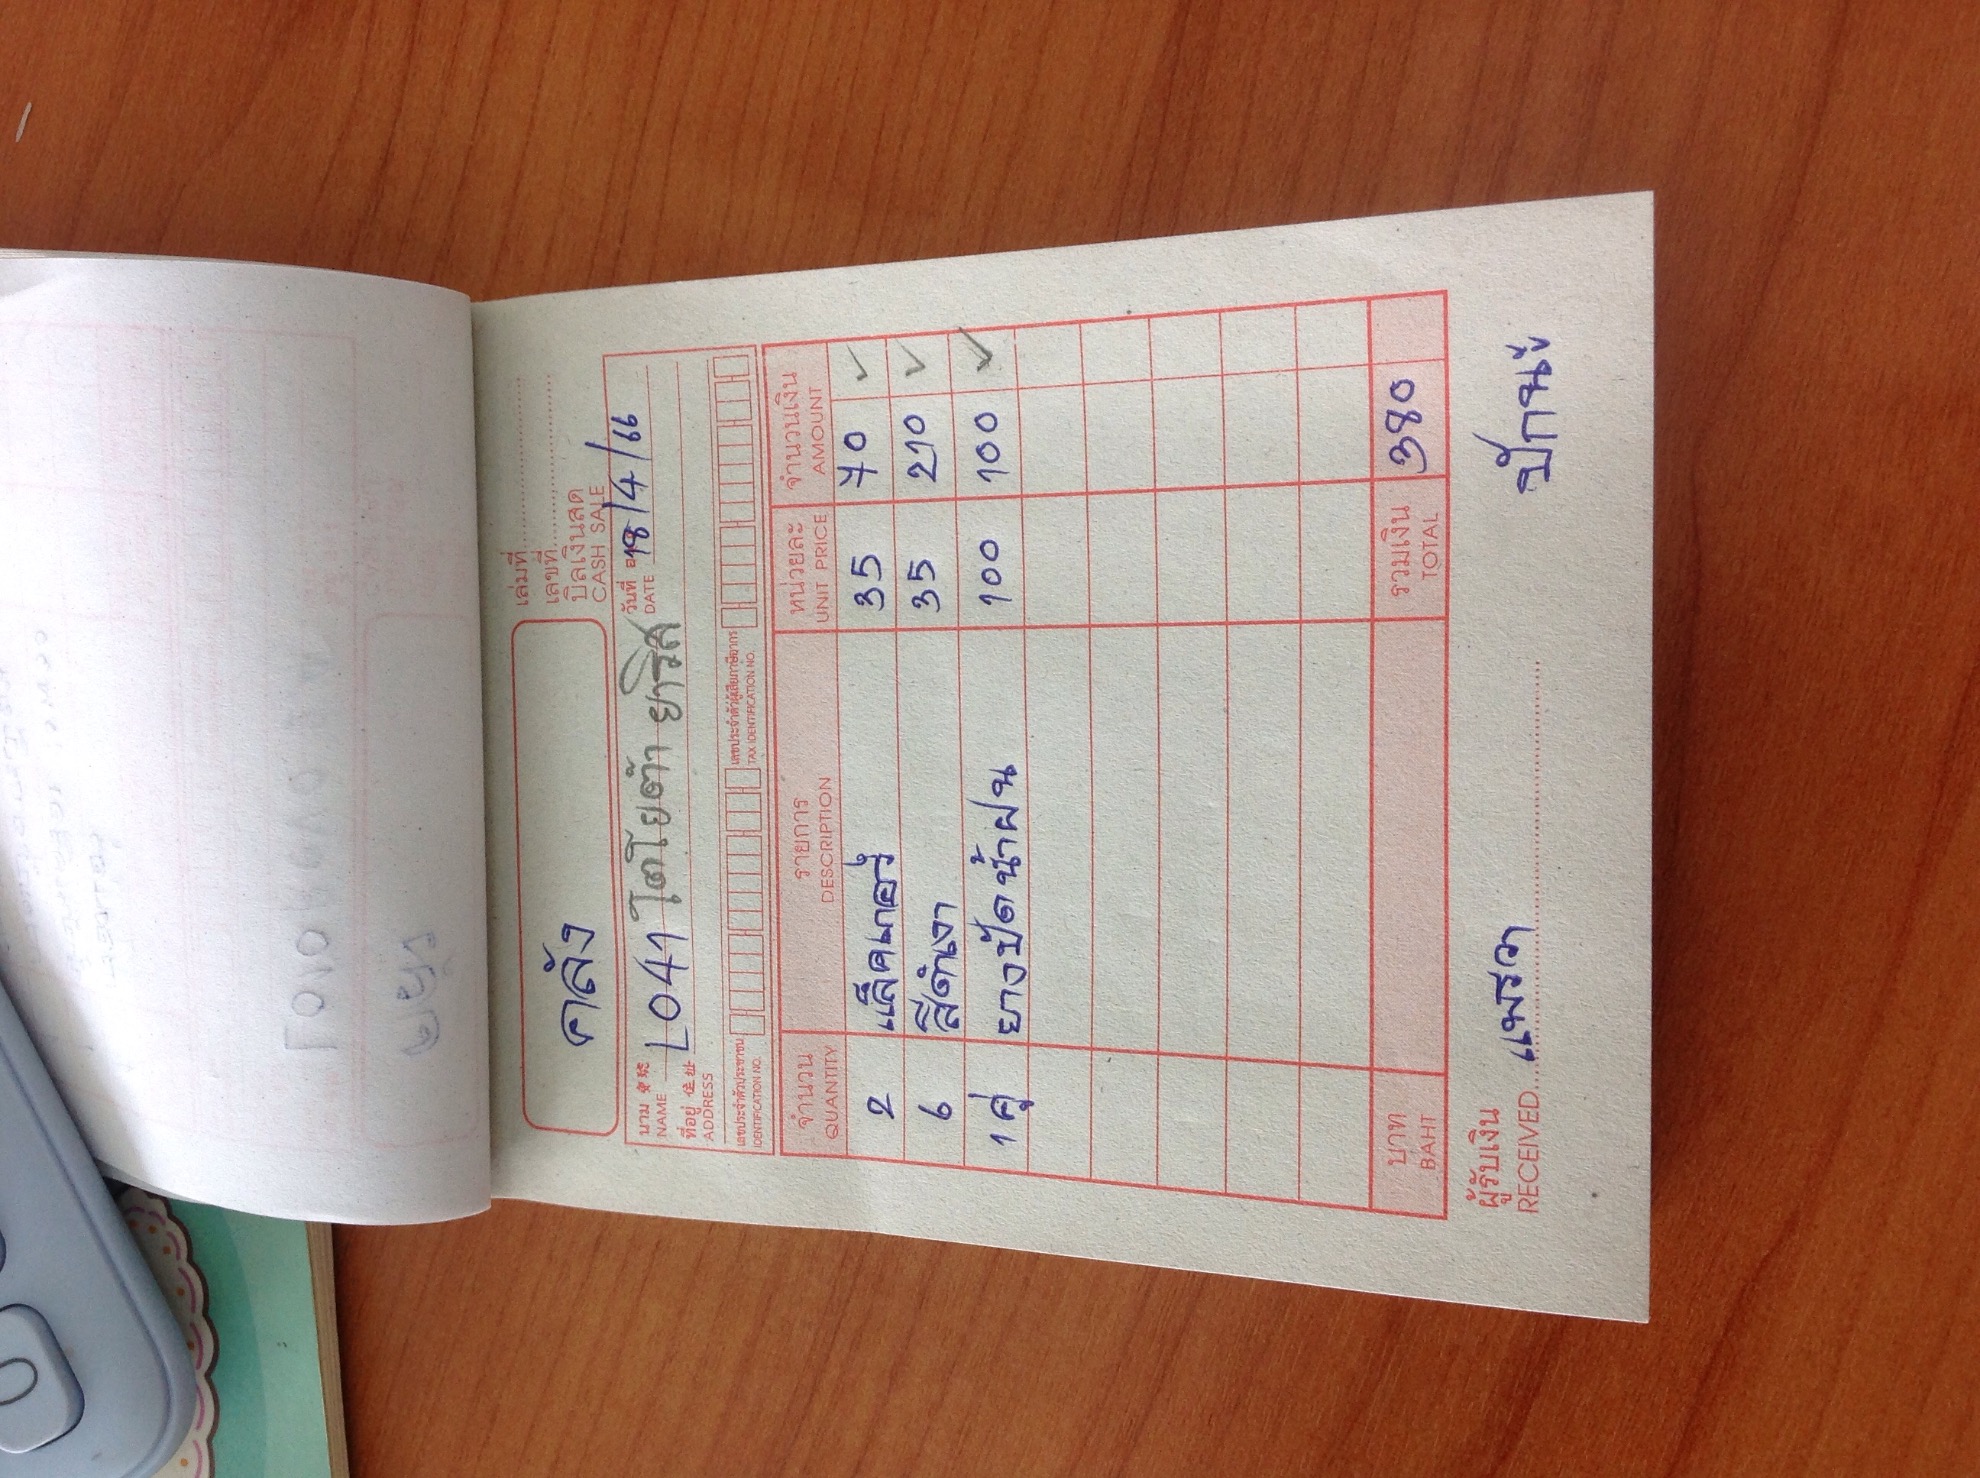 เล่มที่
เลขที่
บิลเงินสด
CASH SALE
คลัง
นาม 宝號 L041 โตโยต้า ยาริส วันที่ 18/4/66
NAME DATE
ที่อยู่ 住址
ADDRESS
เลขประจำตัวประชาชน เลขประจำตัวผู้เสียภาษีอากร
IDENTIFICATION NO. TAX IDENTIFICATION NO.
จำนวน รายการ หน่วยละ จำนวนเงิน
QUANTITY DESCRIPTION UNIT PRICE AMOUNT
2 แล็คเกอร์ 35 70 ✓
6 สีดำเงา 35 210 ✓
1 คู่ ยางปัดน้ำฝน 100 100 ✓
บาท รวมเงิน 380
BAHT TOTAL
ผู้รับเงิน แพรวา
RECEIVED